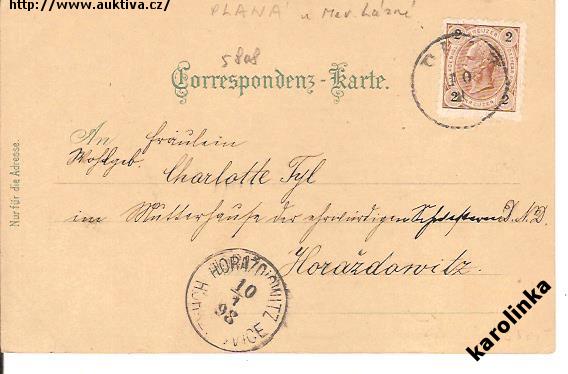 http://www.auktiva.cz/
PLANÁ u Mar. Lázně
5808
Correspondenz-Karte.
2 KREUZER 2
2 KREUZER 2
10
An Fräulein
Wohlgeb. Charlotte Tyl
im Mutterhause der ehrwürdigen Schwestern D. N. D.
Horaždowitz.
Nur für die Adresse.
HORAŽĎOWITZ
10
7
98
karolinka